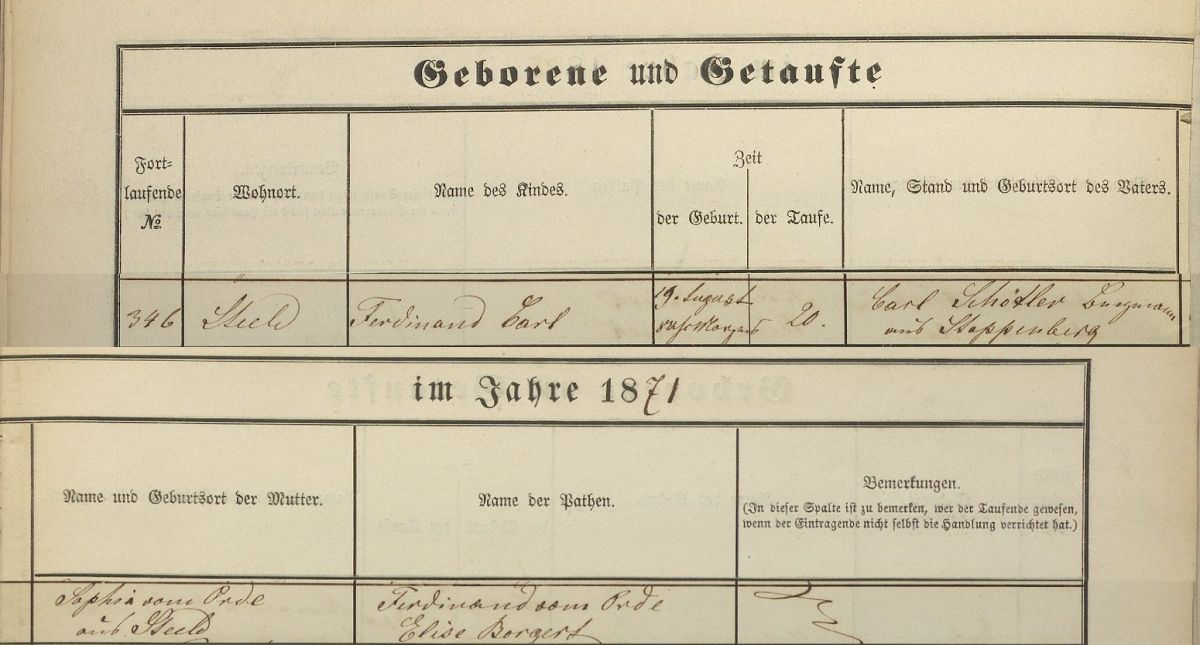 Geborene und Getaufte
Fort-
laufende
No
Wohnort.
Name des Kindes.
Zeit
der Geburt.
der Taufe.
Name, Stand und Geburtsort des Vaters.
346
Steele
Ferdinand Carl
19. August
Morgens
20.
Carl Schöller Bergmann
aus Stoppenberg
im Jahre 1871
Name und Geburtsort der Mutter.
Name der Pathen.
Bemerkungen.
(In dieser Spalte ist zu bemerken, wer der Taufende gewesen,
wenn der Eintragende nicht selbst die Handlung verrichtet hat.)
Sophia vom Orde
aus Steele
Ferdinand vom Orde
Elise Borgert